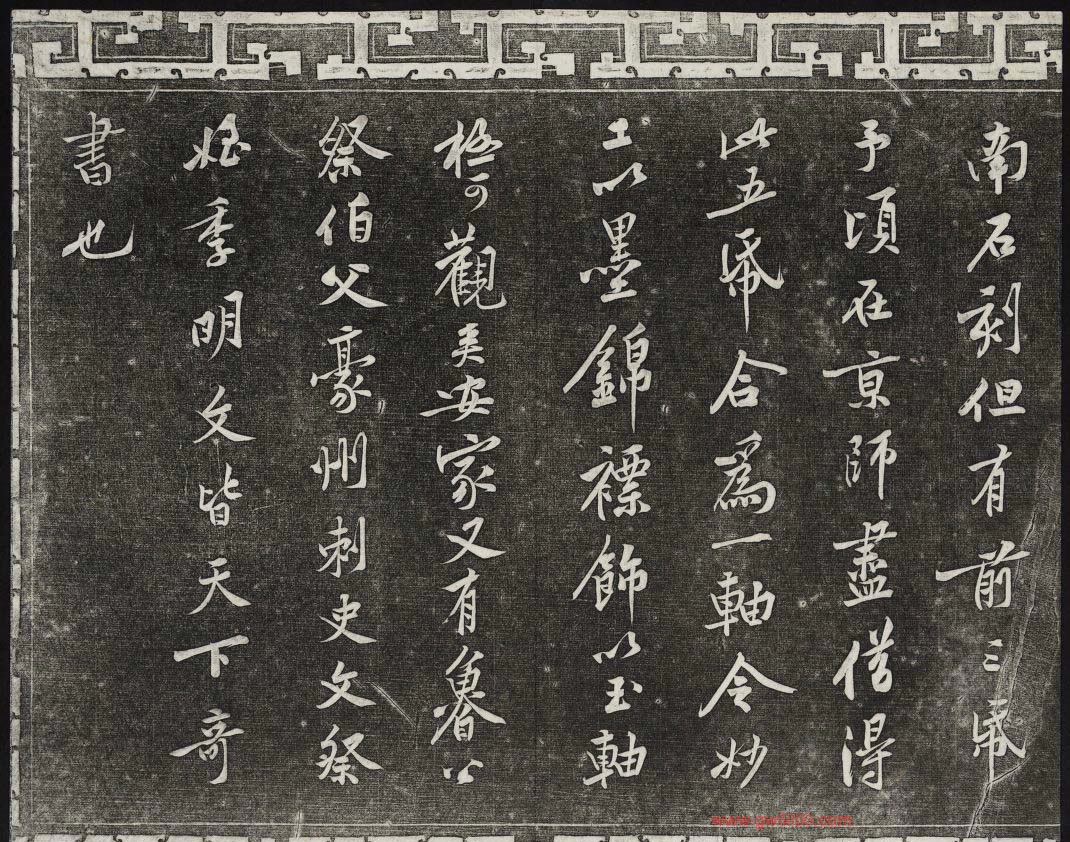 南石刻但有前三紙
予頃在京師盡借得
此五紙合爲一軸令妙
工以墨錦褾飾以玉軸
極可觀矣安家又有魯公
祭伯父豪州刺史文祭
姪季明文皆天下奇
書也